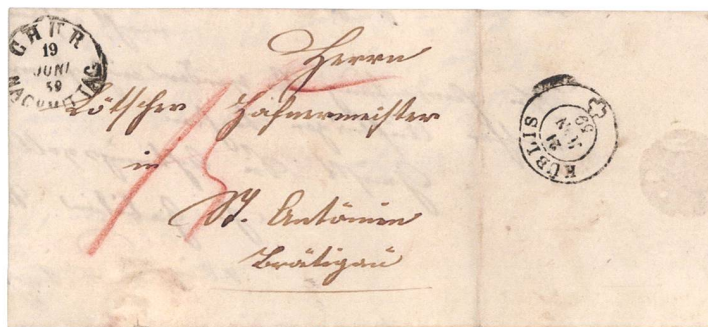 CHUR
19
JUNI
59
NACHMITTAG
Herrn
Lötscher Hafnermeister
in
St. Antönien
Brätigau
15
KÜBLIS
21
JUN
59